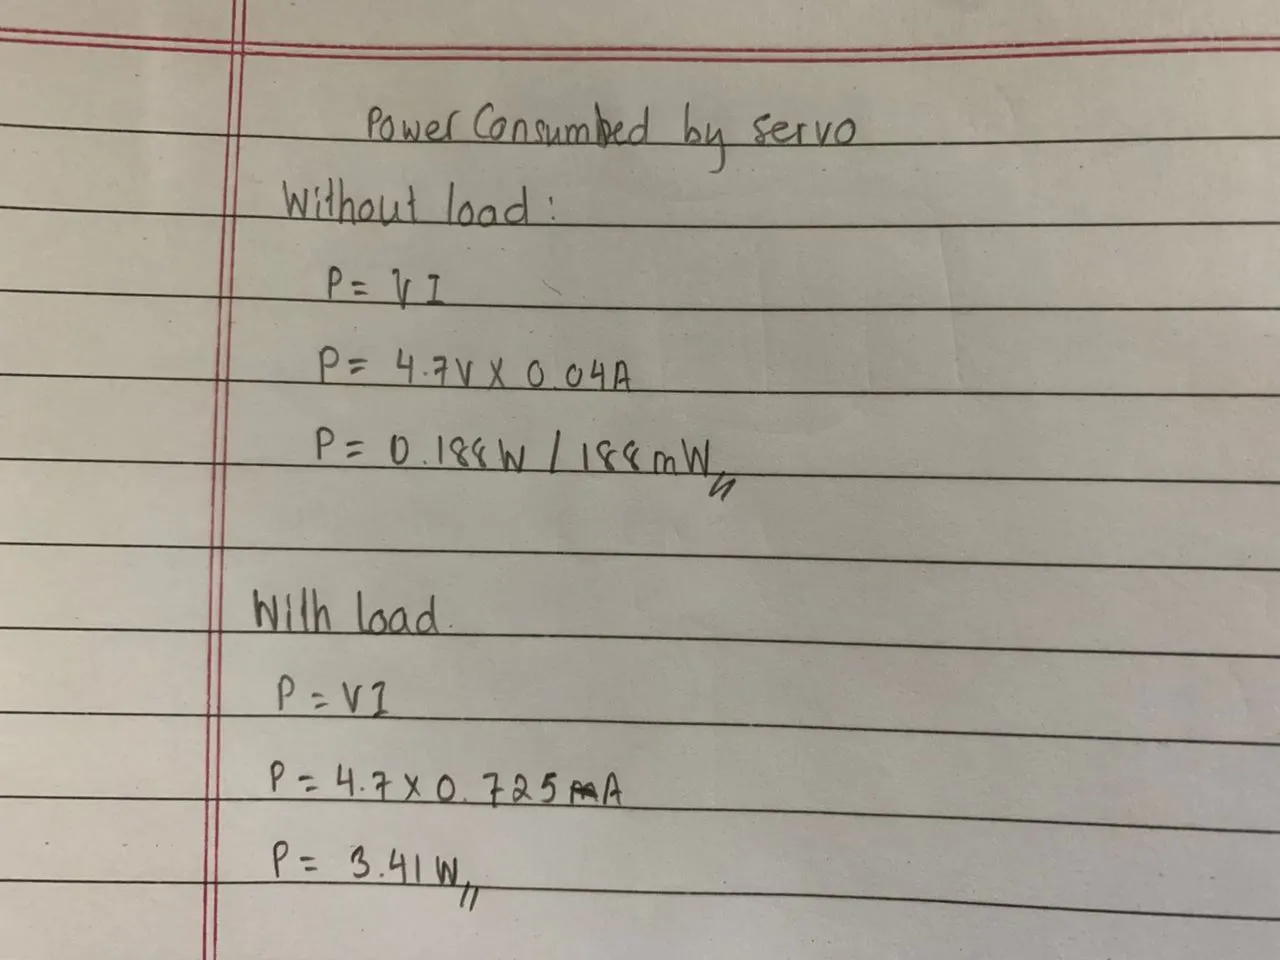 Power Consumbed by servo
Without load:
P = VI
P = 4.7V X 0.04A
P = 0.188W / 188mW
With load.
P = VI
P = 4.7 x 0.725mA
P = 3.41W